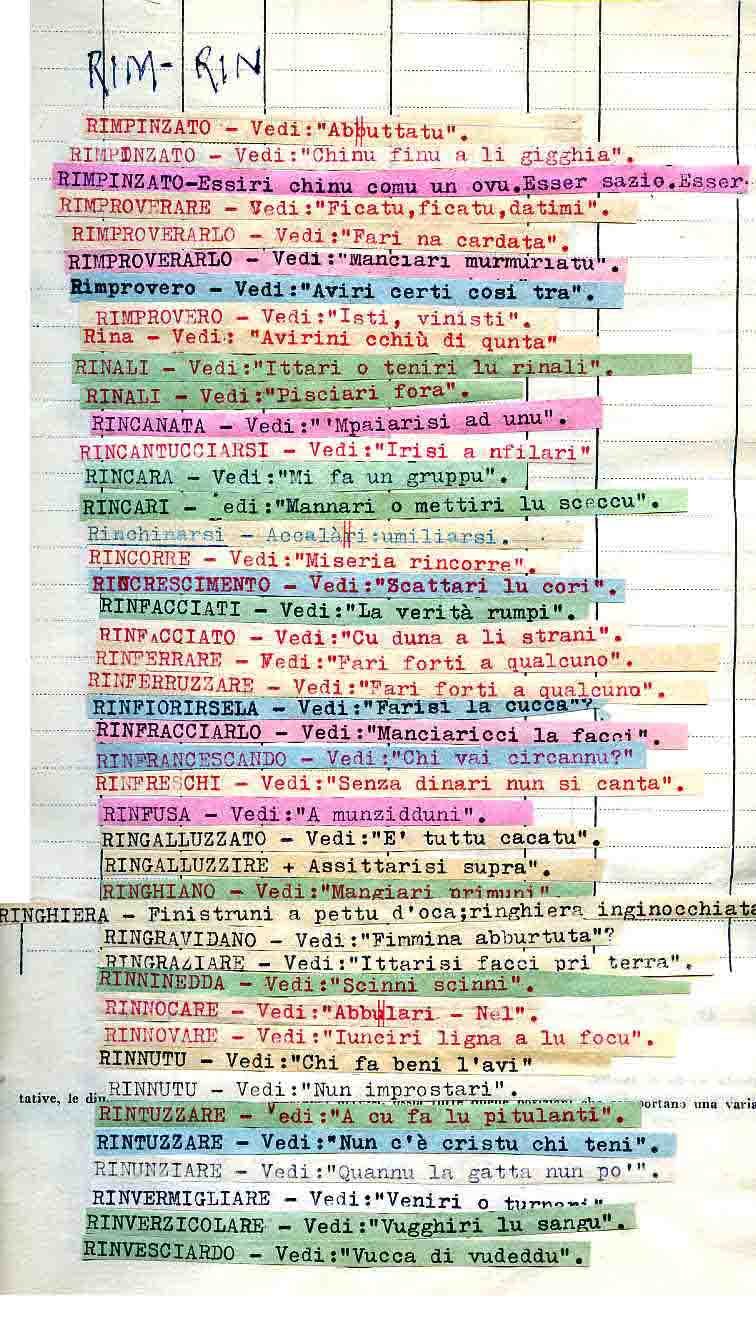 RIM- RIN
RIMPINZATO - Vedi:"Abbuttatu".
RIMPINZATO - Vedi:"Chinu finu a li gigghia".
RIMPINZATO-Essiri chinu comu un ovu.Esser sazio.Esser
RIMPROVERARE - Vedi:"Ficatu,ficatu,datimi".
RIMPROVERARLO - Vedi:"Fari na cardata".
RIMPROVERARLO - Vedi:"Manciari murmuriatu".
Rimprovero - Vedi:"Aviri certi cosi tra".
RIMPROVERO - Vedi:"Isti, vinisti".
Rina - Vedi: "Avirini cchiù di qunta"
RINALI - Vedi:"Ittari o teniri lu rinali".
RINALI - Vedi:"Pisciari fora".
RINCANATA - Vedi:"'Mpaiarisi ad unu".
RINCANTUCCIARSI - Vedi:"Irisi a nfilari"
RINCARA - Vedi:"Mi fa un gruppu".
RINCARI - edi:"Mannari o mettiri lu sceccu".
Rinchinarsi - Accalàri:umiliarsi.
RINCORRE - Vedi:"Miseria rincorre".
RINCRESCIMENTO - Vedi:"Scattari lu cori".
RINFACCIATI - Vedi:"La verità rumpi".
RINFACCIATO - Vedi:"Cu duna a li strani".
RINFERRARE - Vedi:"Fari forti a qualcuno".
RINFERRUZZARE - Vedi:"Fari forti a qualcunu".
RINFIORIRSELA - Vedi:"Farisi la cucca"?
RINFRACCIARLO - Vedi:"Manciaricci la facci".
RINFRANCESCANDO - Vedi:"Chi vai circannu?"
RINFRESCHI - Vedi:"Senza dinari nun si canta".
RINFUSA - Vedi:"A munzidduni".
RINGALLUZZATO - Vedi:"E' tuttu cacatu".
RINGALLUZZIRE + Assittarisi supra".
RINGHIANO - Vedi:"Mangiari primuni"
RINGHIERA - Finistruni a pettu d'oca;ringhiera inginocchiata
RINGRAVIDANO - Vedi:"Fimmina abburtuta"?
RINGRAZIARE - Vedi:"Ittarisi facci pri terra".
RINNINEDDA - Vedi:"Scinni scinni".
RINNOCARE - Vedi:"Abbulari - Nel".
RINNOVARE - Vedi:"Iunciri ligna a lu focu".
RINNUTU - Vedi:"Chi fa beni l'avi"
RINNUTU - Vedi:"Nun improstari".
tative, le din portano una varia
RINTUZZARE - Vedi:"A cu fa lu pitulanti".
RINTUZZARE - Vedi:"Nun c'è cristu chi teni".
RINUNZIARE - Vedi:"Quannu la gatta nun po'".
RINVERMIGLIARE - Vedi:"Veniri o
RINVERZICOLARE - Vedi:"Vugghiri lu sangu".
RINVESCIARDO - Vedi:"Vucca di vudeddu".